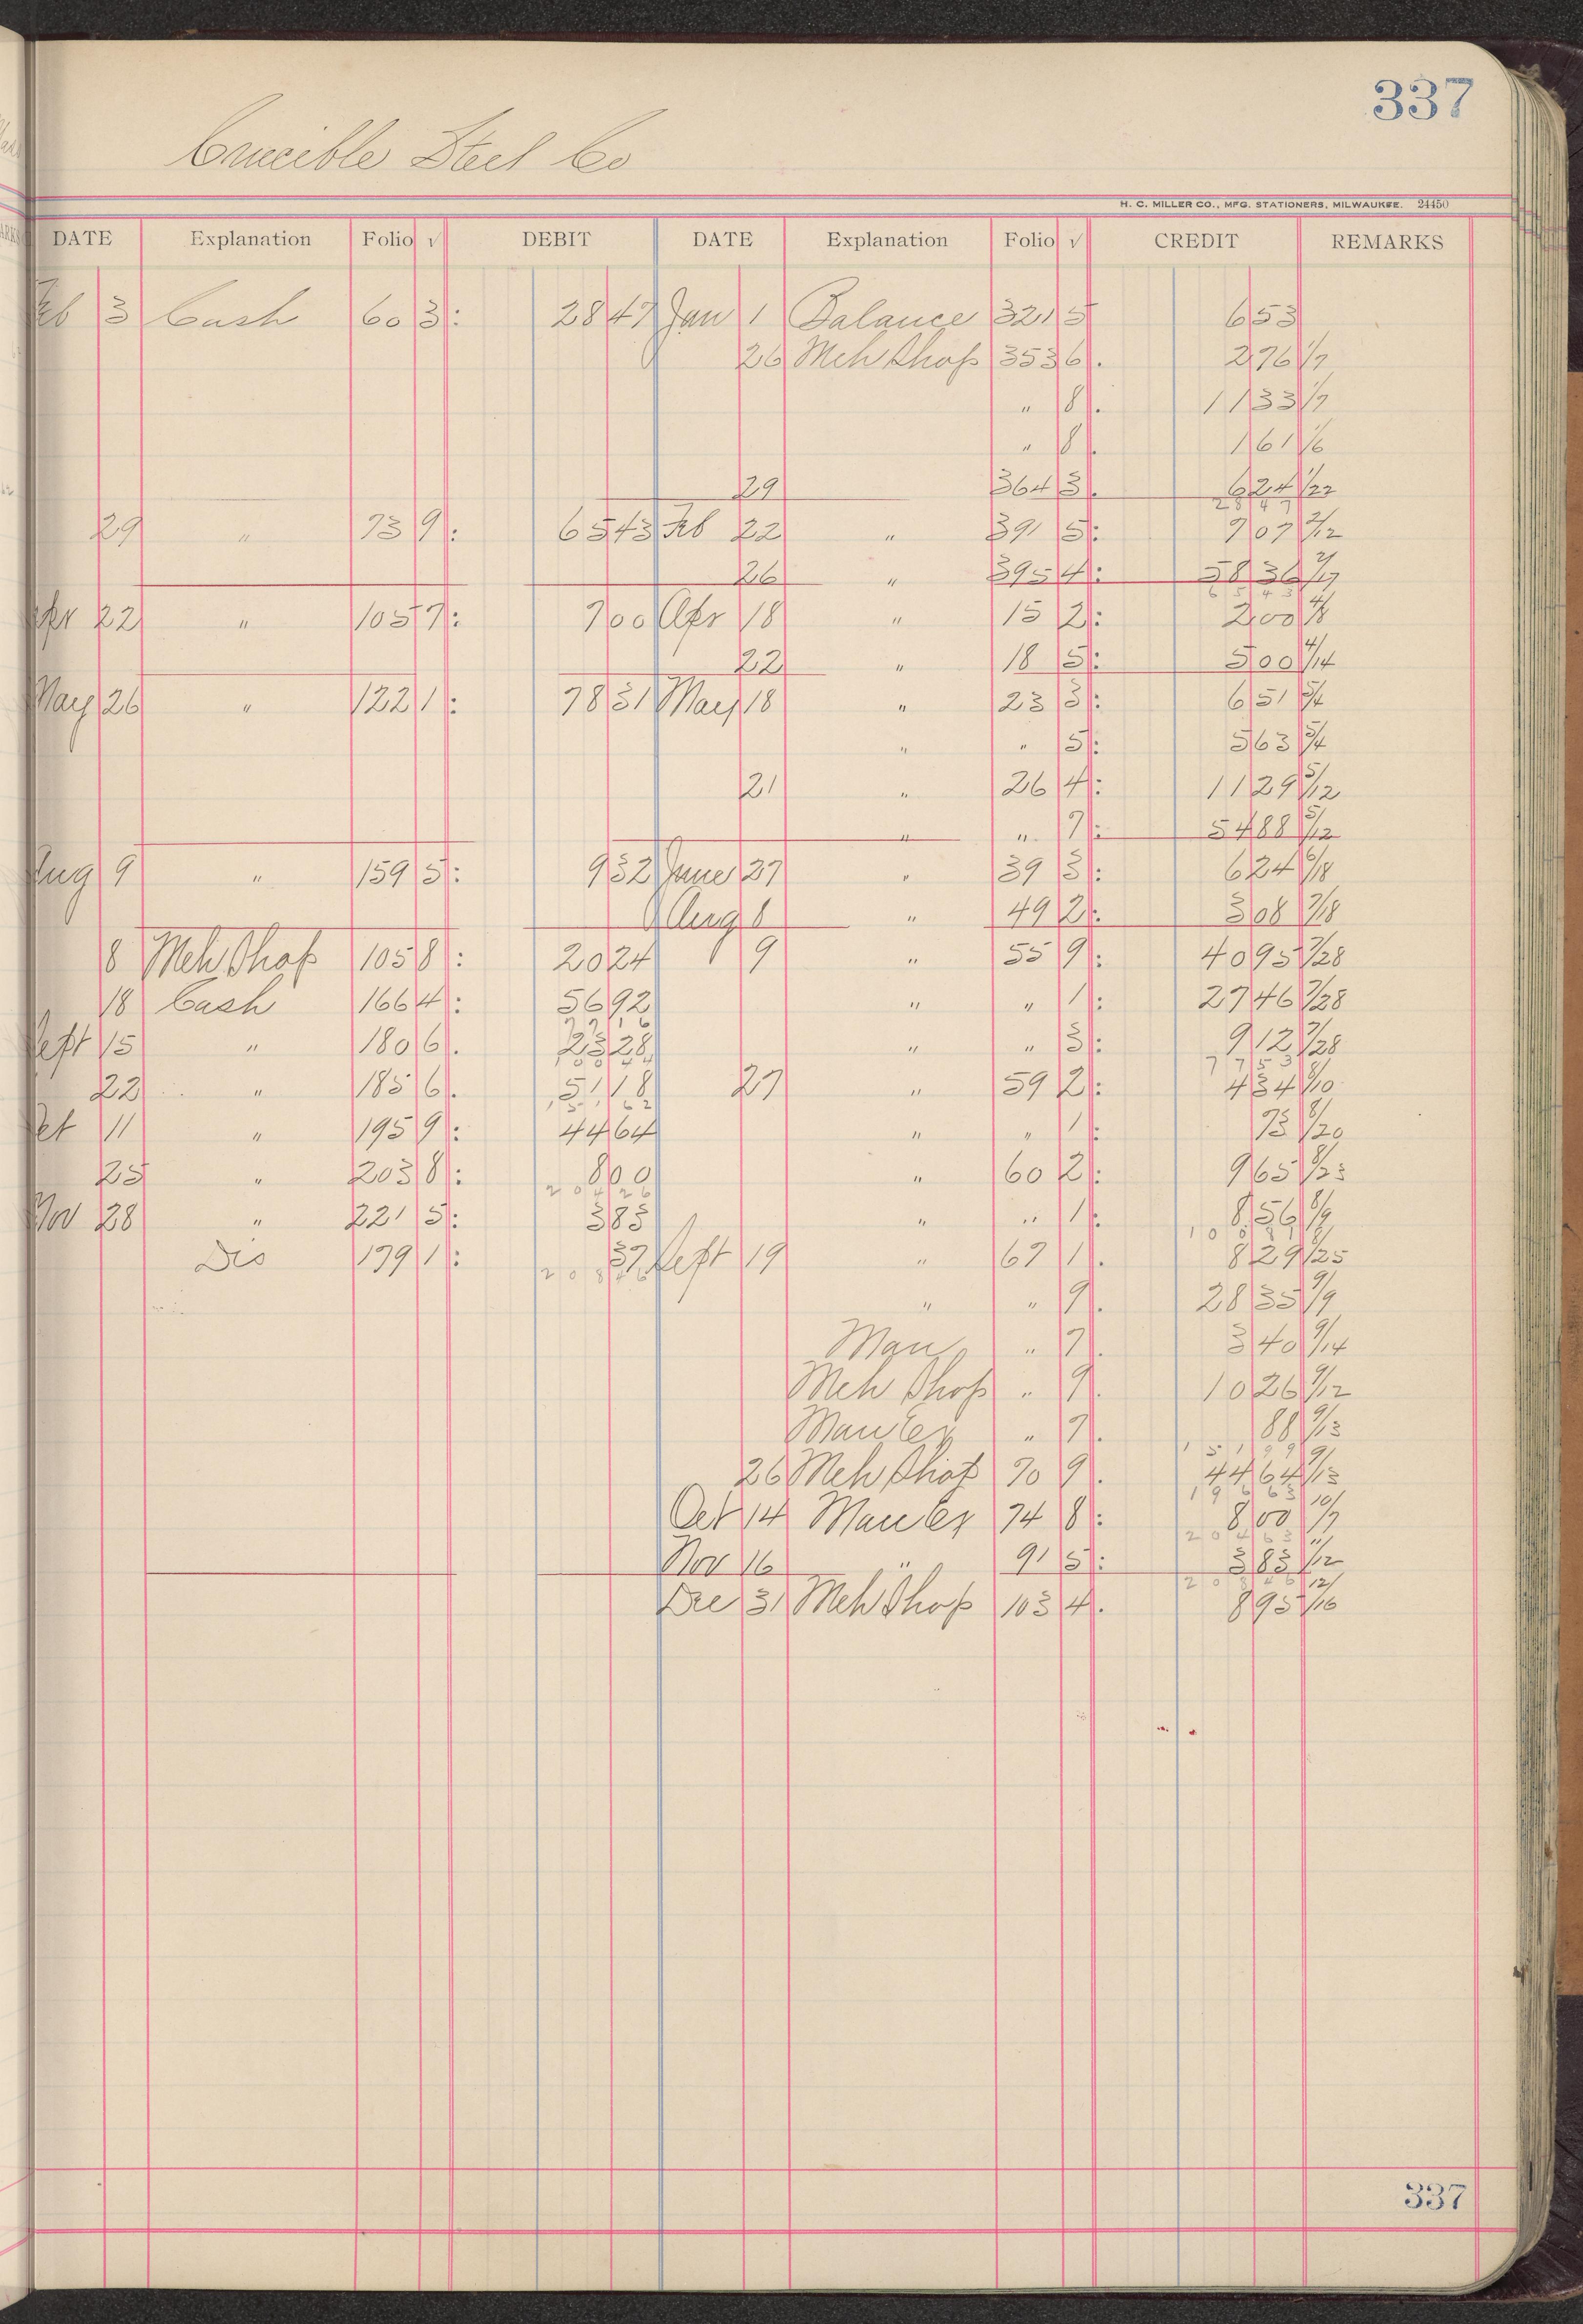 337
Crucible Steel Co
H. C. MILLER CO., MFG. STATIONERS, MILWAUKEE. 24450
DATE Explanation Folio √ DEBIT DATE Explanation Folio √ CREDIT REMARKS
Feb 3 Cash 60 3: 2847 Jan 1 Balance 321 5 653
26 Mch Shop 353 6. 276 1/7
" 8. 1133 1/7
" 8. 161 1/6
29 364 3. 624 1/22
2847
29 " 73 9: 6543 Feb 22 " 391 5: 707 2/12
26 " 395 4: 5836 2/17
6543
Apr 22 " 105 7: 700 Apr 18 " 15 2: 200 4/8
22 " 18 5: 500 4/14
May 26 " 122 1: 7831 May 18 " 23 3: 651 5/4
" " 5: 563 5/4
21 " 26 4: 1129 5/12
" " 7: 5488 5/12
Aug 9 " 159 5: 932 June 27 " 39 3: 624 6/18
Aug 6 " 49 2: 308 7/18
8 Mch Shop 105 8: 2024 9 " 55 9: 4095 7/28
18 Cash 166 4: 5692 " " 1: 2746 7/28
7716
Sept 15 " 180 6. 2328 " " 3: 912 7/28
10044 7753
22 " 185 6. 5118 27 " 59 2: 434 8/10
15162
Oct 11 " 195 9: 4464 " " 1: 73 8/20
25 " 203 8: 800 " 60 2: 965 8/23
20426
Nov 28 " 221 5: 383 " " 1: 856 8/9
10081
Dis 179 1: 37 Sept 19 " 67 1. 829 8/25
20846
" " 9. 2835 9/9
Man " 7. 340 9/14
Mch Shop " 9. 1026 9/12
Man Ex " 7. 88 9/13
15199
26 Mch Shop 70 9. 4464 9/13
19663
Oct 14 Man Ex 74 8: 800 10/7
20463
Nov 16 " 91 5: 383 11/12
20846
Dec 31 Mch Shop 103 4. 895 12/16
337